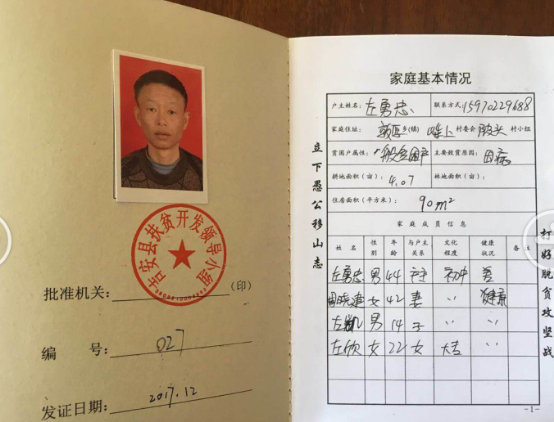 吉安县扶贫开发领导小组
批准机关：（印）
编号：027
发证日期：2017.12
家庭基本情况
户主姓名：左勇忠 联系方式：15970229688
家庭住址：乡(镇) 村委会 村小组
贫困户属性：一般贫困户 主要致贫原因：因病
耕地面积（亩）：4.07 林地面积（亩）：
住房面积（平方米）：90m²
家庭成员信息
姓名 性别 年龄 与户主关系 文化程度 健康状况 备注
左勇忠 男 44 户主 初中
女 42 妻 〃 健康
男 14 子 〃 〃
左欣 女 22 女 大专 〃
立下愚公移山志
打好脱贫攻坚战
-1-